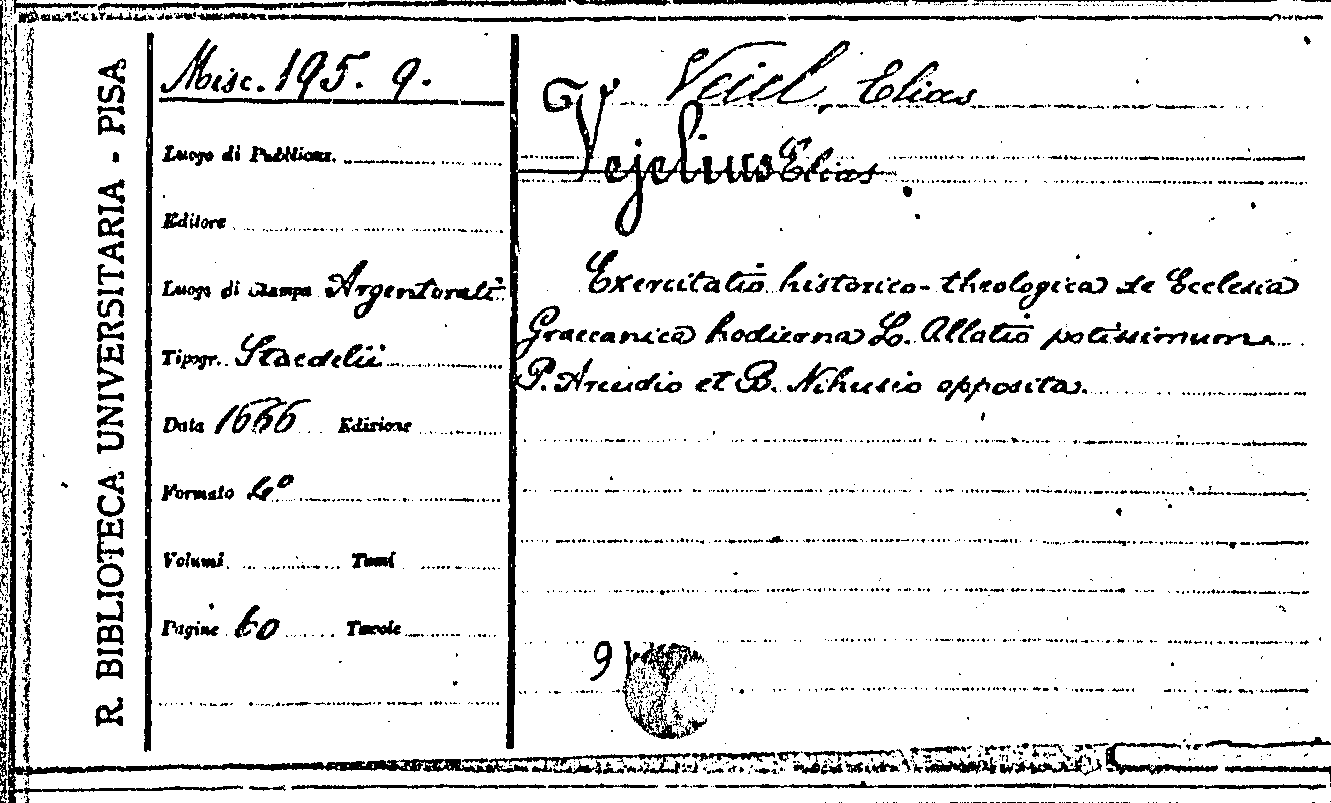 R. BIBLIOTECA UNIVERSITARIA - PISA
Misc. 195. 9.
Luogo di Pubblicaz.
Editore
Luogo di stampa Argentorati
Tipogr. Staedelii
Data 1666 Edizione
Formato 4º
Volumi Tomi
Pagine 60 Tavole
Veiel, Elias
Vejelius Elias
Exercitatio historico-theologica de Ecclesia
Graecanica hodierna L. Allatio potissimum
P. Arcudio et B. Nihusio opposita.
9